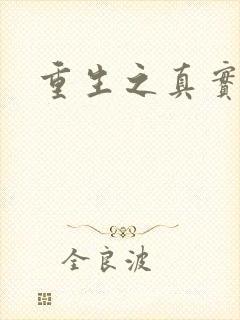 重生之真實
全良波